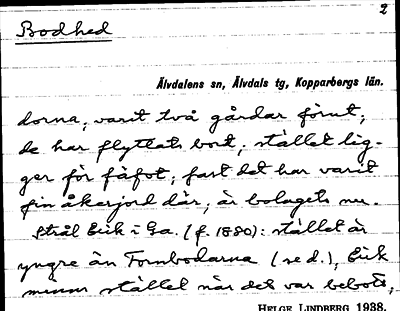 2
Bodhed
Älvdalens sn, Älvdals tg, Kopparbergs län.
dorna; varit två gårdar förut;
de har flyttats bort; stället lig-
ger för fäfot; fast det har varit
fin åkerjord där, är bolagets nu.
Strål Erik i Ga. (f. 1880): stället är
yngre än Tornbodarna (se d.), Erik
minns stället när det var bebott,
HELGE LINDBERG 1938.